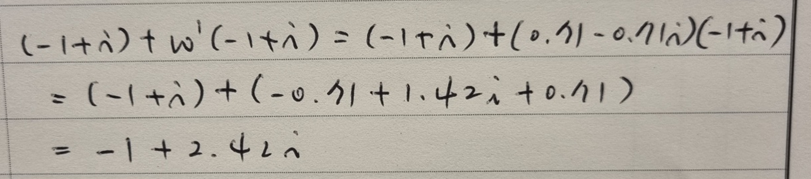 (-1+i)+W¹(-1+i)=(-1+i)+(0.71-0.71i)(-1+i)
=(-1+i)+(-0.71+1.42i+0.71)
=-1+2.42i